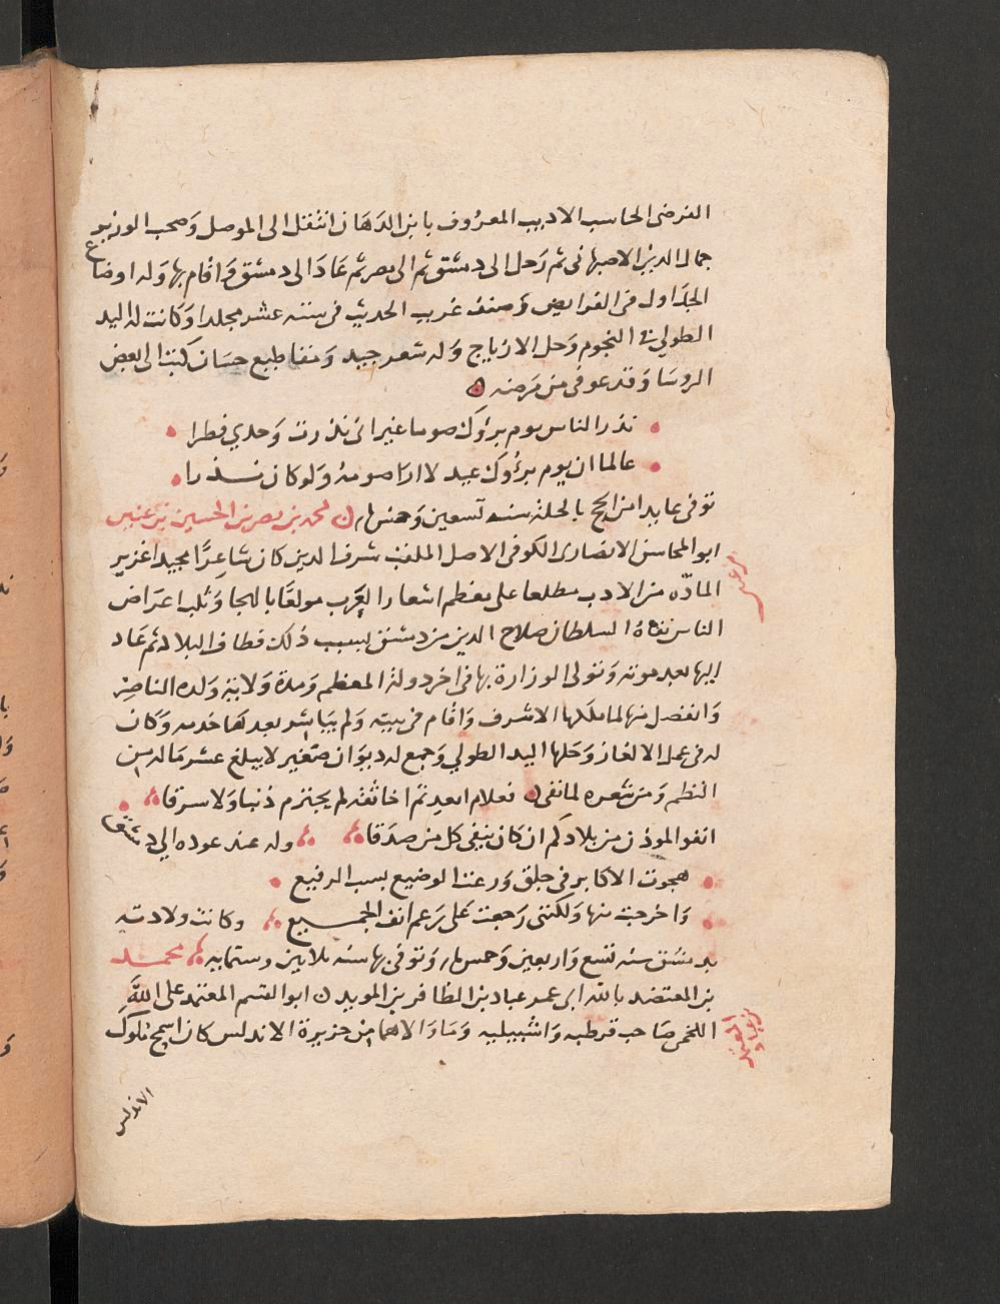 الفرضى الحاسب الاديب المعروف بابن الدهان انتقل الى الموصل وصحب الوزير
جمال الدين الاصبهانى ثم رحل الى دمشق ثم الى مصر ثم عاد الى دمشق واقام بها وله اوضاع
الجداول فى الفرايض وصنف غريب الحديث فى ستة عشر مجلدا وكانت له اليد
الطولي فى النجوم وحل الازياج وله شعر جيد ومقاطيع حسان كتب الى بعض
الروسا وقد عوفى من مرضه
نذر الناس يوم بروك صوما غير انى نذرت وحدي فطرا
عالما ان يوم بروك عيد لا ارا صومه ولو كان نذرا
توفى عايدا من الحج بالحلة سنه تسعين وخمسمايه محمد بن نصر بن الحسين بن عنين
ابو المحاسن الانصارى الكوفى الاصل الملقب شرف الدين كان شاعرا مجيدا غزير
المادّه من الادب مطلعا على معظم اشعار العرب مولعا بالهجا وثلب اعراض
الناس نفاه السلطان صلاح الدين من دمشق بسبب ذلك فطاف البلاد ثم عاد
اليها بعد موته وتولى الوزارة بها فى اخر دولة المعظم ومدة ولاية ولده الناصر
وانفصل منها لما ملكها الاشرف واقام فى بيته ولم يباشر بعدها خدمه وكان
له فى عمل الالغاز وحلها اليد الطولي وجمع له ديوان صغير لا يبلغ عشر ماله من
النظم ومن شعره لما نفى فعلام ابعدتم اخا ثقة لم يجترم ذنبا ولا سرقا
انفوا الموذن من بلادكم ان كان ينفى كل من صدقا وله عند عوده الي دمشق
هجوت الاكابر فى جلق ورعت الوضيع بسب الرفيع
واخرجت منها ولكننى رجعت على رغم انف الجميع وكانت ولادته
بدمشق سنه تسع واربعين وخمسمايه وتوفى بها سنه ثلاثين وستمايه محمد
بن المعتضد بالله ابى عمر عباد بن الظافر بن المويد ابو القسم المعتمد على الله
اللخمى صاحب قرطبه واشبيليه وما والاهما من جزيرة الاندلس كان اسمح ملوك
الاندلس